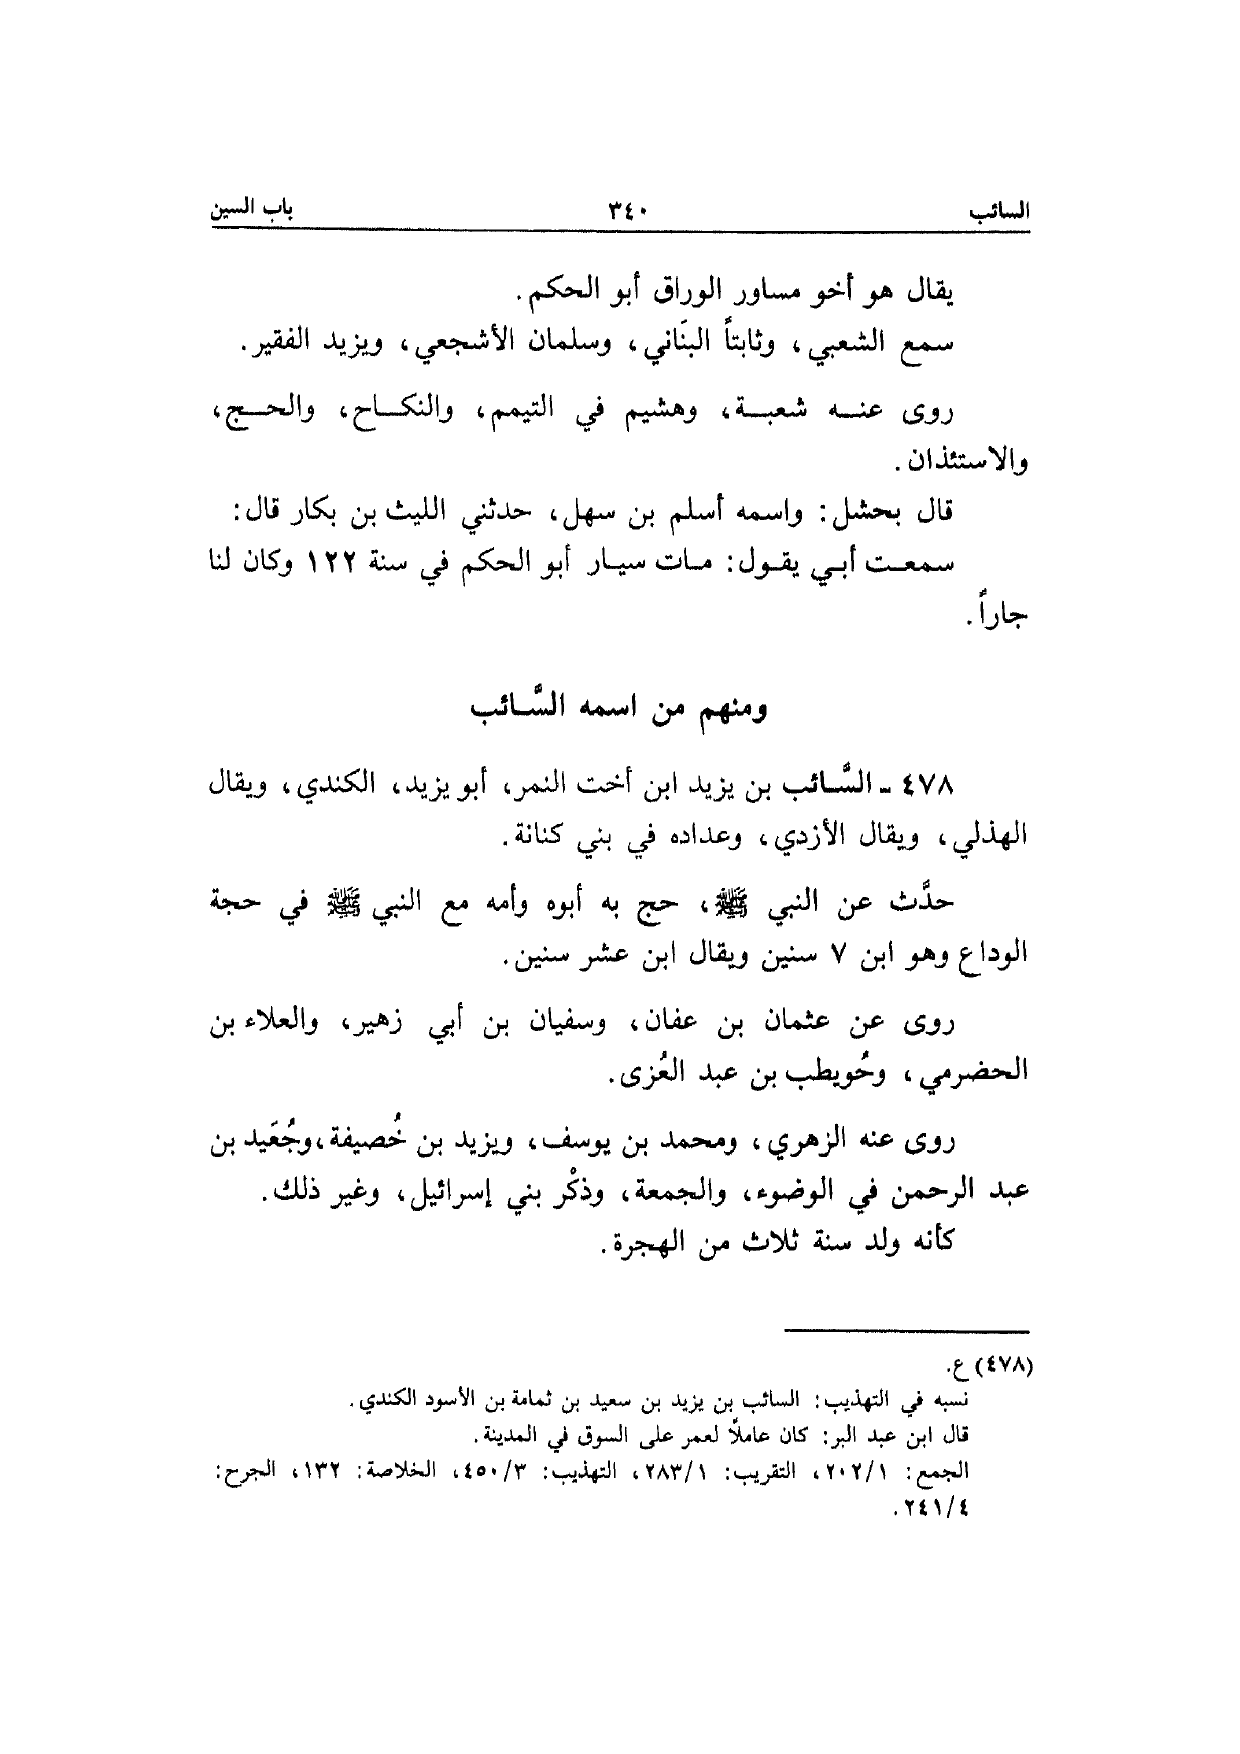 السائب ٣٤٠ باب السين
يقال هو أخو مساور الوراق أبو الحكم.
سمع الشعبي، وثابتاً البنَاني، وسلمان الأشجعي، ويزيد الفقير.
روى عنه شعبة، وهشيم في التيمم، والنكاح، والحج،
والاستئذان.
قال بحشل: واسمه أسلم بن سهل، حدثني الليث بن بكار قال:
سمعت أبي يقول: مات سيار أبو الحكم في سنة ١٢٢ وكان لنا
جاراً.
ومنهم من اسمه السَّائب
٤٧٨ ـ السَّائب بن يزيد ابن أخت النمر، أبو يزيد، الكندي، ويقال
الهذلي، ويقال الأزدي، وعداده في بني كنانة.
حدَّث عن النبي ﷺ، حج به أبوه وأمه مع النبي ﷺ في حجة
الوداع وهو ابن ٧ سنين ويقال ابن عشر سنين.
روى عن عثمان بن عفان، وسفيان بن أبي زهير، والعلاء بن
الحضرمي، وحُويطب بن عبد العُزى.
روى عنه الزهري، ومحمد بن يوسف، ويزيد بن خُصيفة، وجُعَيد بن
عبد الرحمن في الوضوء، والجمعة، وذكْر بني إسرائيل، وغير ذلك.
كأنه ولد سنة ثلاث من الهجرة.
(٤٧٨) ع.
نسبه في التهذيب: السائب بن يزيد بن سعيد بن ثمامة بن الأسود الكندي.
قال ابن عبد البر: كان عاملًا لعمر على السوق في المدينة.
الجمع: ٢٠٢/١، التقريب: ٢٨٣/١، التهذيب: ٤٥٠/٣، الخلاصة: ١٣٢، الجرح:
٢٤١/٤.